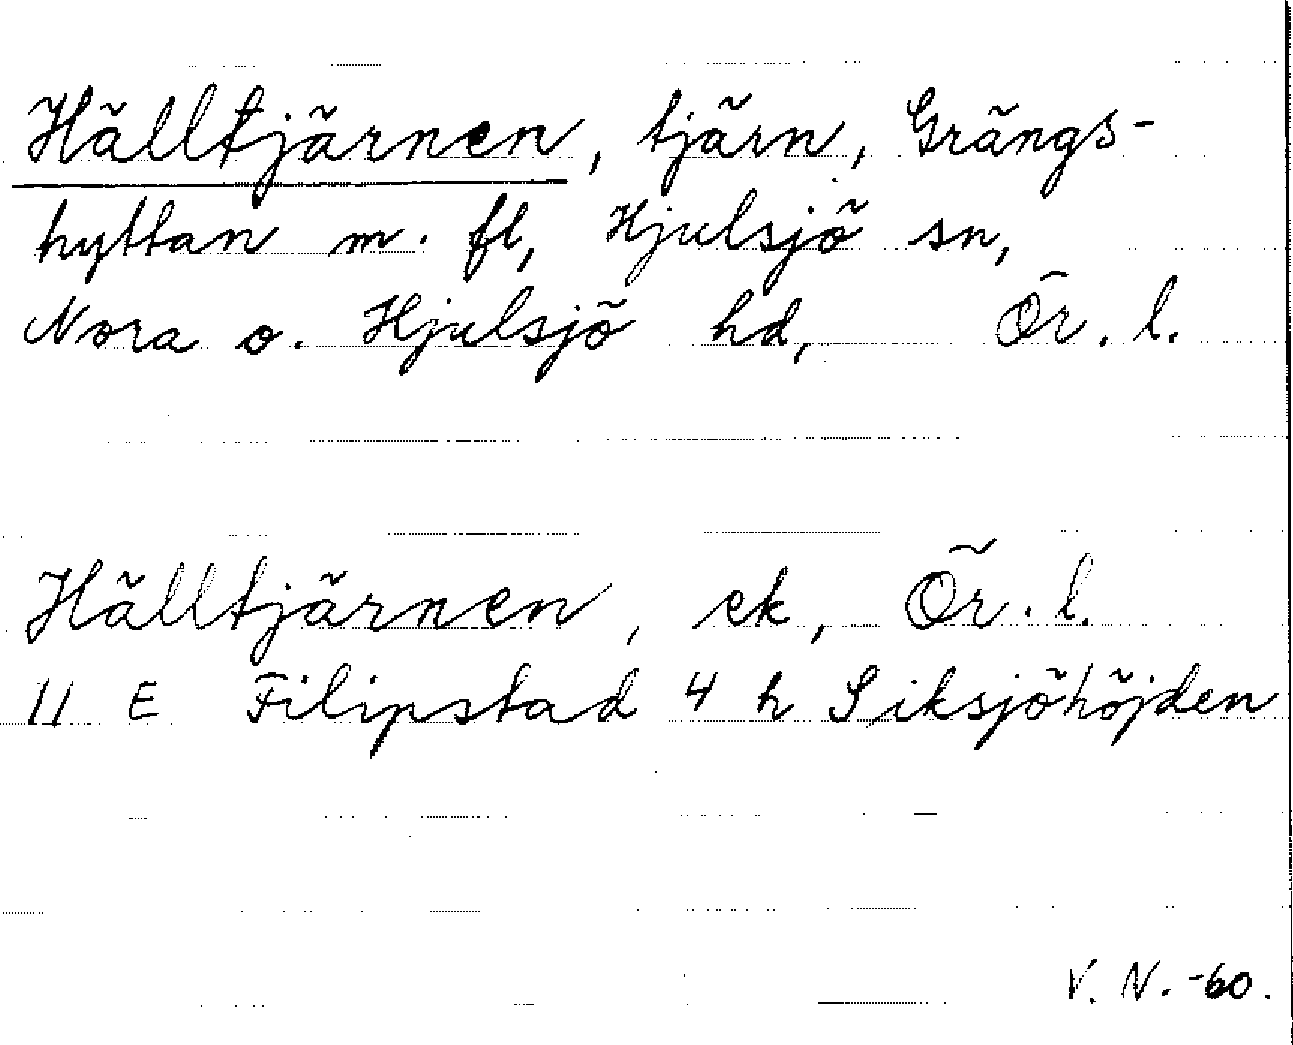 Hälltjärnen, tjärn, Grängs-
hyttan m. fl, Hjulsjö sn,
Nora o. Hjulsjö hd, Ör. l.
Hälltjärnen, ek, Ör. l.
11 E Filipstad 4 h Siksjöhöjden
V. N. -60.